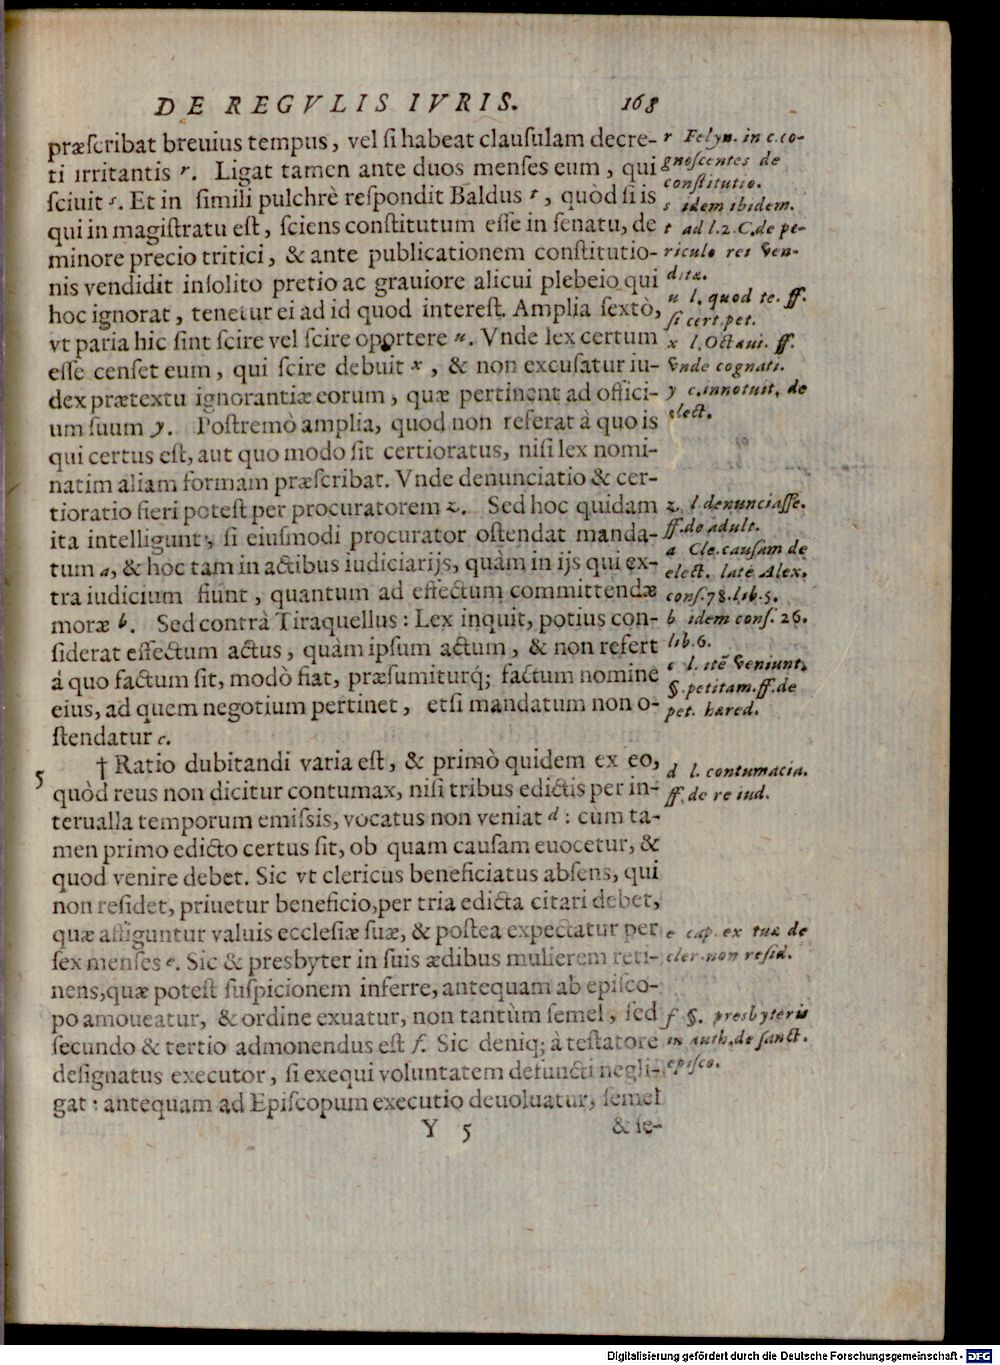 DE REGVLIS IVRIS. 168
præſcribat breuius tempus, vel ſi habeat clauſulam decre-
ti irritantis r. Ligat tamen ante duos menſes eum, qui
ſciuit s. Et in ſimili pulchrè reſpondit Baldus t, quòd ſi is
qui in magiſtratu eſt, ſciens conſtitutum eſſe in ſenatu, de
minore precio tritici, & ante publicationem conſtitutio-
nis vendidit inſolito pretio ac grauiore alicui plebeio qui
hoc ignorat, tenetur ei ad id quod intereſt. Amplia ſextò,
vt paria hic ſint ſcire vel ſcire oportere u. Vnde lex certum
eſſe cenſet eum, qui ſcire debuit x, & non excuſatur iu-
dex prætextu ignorantiæ eorum, quæ pertinent ad offici-
um ſuum y. Poſtremò amplia, quod non referat à quo is
qui certus eſt, aut quo modo ſit certioratus, niſi lex nomi-
natim aliam formam præſcribat. Vnde denunciatio & cer-
tioratio fieri poteſt per procuratorem z. Sed hoc quidam
ita intelligunt, ſi eiuſmodi procurator oſtendat manda-
tum a, & hoc tam in actibus iudiciarijs, quàm in ijs qui ex-
tra iudicium fiunt, quantum ad effectum committendæ
moræ b. Sed contrà Tiraquellus: Lex inquit, potius con-
ſiderat effectum actus, quàm ipſum actum, & non refert
á quo factum ſit, modò fiat, præſumiturq́; factum nomine
eius, ad quem negotium pertinet, etſi mandatum non o-
ſtendatur c.
5 † Ratio dubitandi varia eſt, & primò quidem ex eo,
quòd reus non dicitur contumax, niſi tribus edictis per in-
terualla temporum emiſsis, vocatus non veniat d: cùm ta-
men primo edicto certus ſit, ob quam cauſam euocetur, &
quod venire debet. Sic vt clericus beneficiatus abſens, qui
non reſidet, priuetur beneficio, per tria edicta citari debet,
quæ affiguntur valuis eccleſiæ ſuæ, & poſtea expectatur per
ſex menſes e. Sic & presbyter in ſuis ædibus mulierem reti-
nens, quæ poteſt ſuſpicionem inferre, antequam ab epiſco-
po amoueatur, & ordine exuatur, non tantùm ſemel, ſed
ſecundo & tertio admonendus eſt f. Sic deniq; à teſtatore
deſignatus executor, ſi exequi voluntatem defuncti negli-
gat: antequam ad Epiſcopum executio deuoluatur, ſemel
Y 5 & ſe-
r Felyn. in c. co-
gnoſcentes de
conſtitutio.
s idem ibidem.
t ad l. 2. C. de pe-
riculo rei ven-
ditæ.
u l. quod te. ff.
ſi cert. pet.
x l. Octaui. ff.
vnde cognati.
y c. innotuit, de
elect.
z l denunciaſſe.
ff. de adult.
a Cle. cauſam de
elect. latè Alex.
conſ. 78. lib. 5.
b idem conſ. 26.
lib. 6.
c l. itē veniunt,
§. petitam. ff. de
pet. hæred.
d l. contumacia.
ff. de re iud.
e cap. ex tuæ de
cler. non reſid.
f §. presbyteris
in auth. de ſanct.
epiſco.
Digitalisierung gefördert durch die Deutsche Forschungsgemeinschaft - DFG